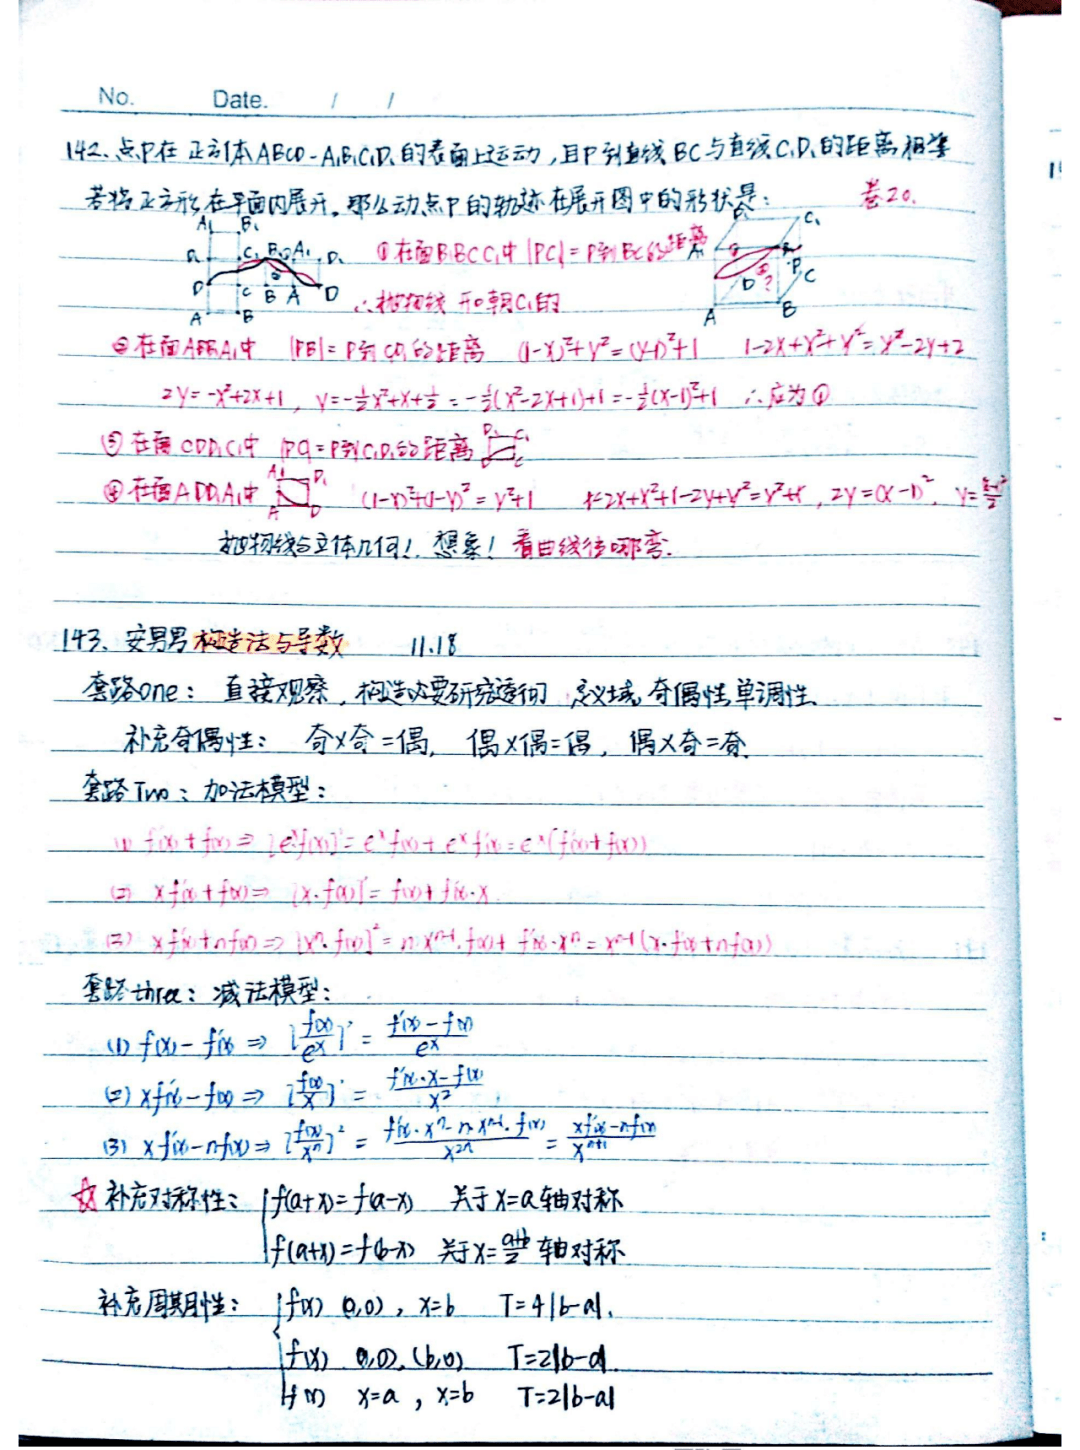 No. Date. / /
142、点P在正方体ABCD-A₁B₁C₁D₁的表面上运动,且P到直线BC与直线C₁D₁的距离相等
若将正方形在平面内展开,那么动点P的轨迹在展开图中的形状是: 卷20.
①在面B₁BCC₁中 |PC₁|=P到BC的距离
∴抛物线 开口朝C₁的
②在面ABB₁A₁中 |PB|=P到C₁D₁的距离 (1-x)²+y²=(y-1)²+1 1-2x+x²+y²=y²-2y+2
2y=-x²+2x+1, y=-½x²+x+½=-½(x²-2x+1)+1=-½(x-1)²+1 ∴应为①
③在面CDD₁C₁中 |PC|=P到C₁D₁的距离
④在面ADD₁A₁中 (1-x)²+(1-y)²=y²+1 1-2x+x²+1-2y+y²=y²+1, 2y=(x-1)².
抛物线与立体几何!想象!看曲线往哪弯.
143、安男男构造法与导数 11.18
套路one: 直接观察,构造必要研究透彻 定义域,奇偶性,单调性.
补充奇偶性: 奇×奇=偶, 偶×偶=偶, 偶×奇=奇.
套路Two:加法模型:
(1) f'(x)+f(x)⇒ [eˣf(x)]'=eˣf(x)+eˣf'(x)=eˣ(f'(x)+f(x))
(2) xf'(x)+f(x)⇒ [x·f(x)]'=f(x)+f'(x)·x
(3) xf'(x)+nf(x)⇒[xⁿ·f(x)]'=n·xⁿ⁻¹·f(x)+f'(x)·xⁿ=xⁿ⁻¹(x·f'(x)+nf(x))
套路three: 减法模型:
(1) f(x)-f'(x) ⇒ [f(x)/eˣ]' = (f'(x)-f(x))/eˣ
(2) xf'(x)-f(x) ⇒ [f(x)/x]' = (f'(x)·x-f(x))/x²
(3) xf'(x)-nf(x)⇒ [f(x)/xⁿ]' = (f'(x)·xⁿ-n·xⁿ⁻¹·f(x))/x²ⁿ = (xf'(x)-nf(x))/xⁿ⁺¹
☆补充对称性: f(a+x)=f(a-x) 关于x=a轴对称
f(a+x)=f(b-x) 关于x=(a+b)/2 轴对称
补充周期性: f(x) (a,0), x=b T=4|b-a|.
f(x) (a,0),(b,0) T=2|b-a|.
f(x) x=a, x=b T=2|b-a|